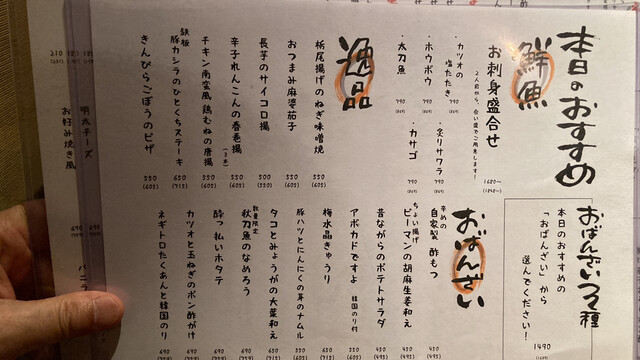 本日のおすすめ
鮮魚
お刺身盛合せ
2人前から、合い盛でご用意します!
1680〜
(1848〜)
・カツオの塩たたき
790
(869)
・炙りサワラ
790
(869)
・ホウボウ
790
(869)
・カサゴ
790
(869)
・太刀魚
790
(869)
逸品
栃尾揚げのねぎ味噌焼
550
(605)
おつまみ麻婆茄子
550
(605)
長芋のサイコロ揚
550
(605)
辛子れんこんの春巻揚
550
(605)
チキン南蛮風 鶏むねの唐揚
550
(605)
鉄板
豚カシラのひとくちステーキ
650
(715)
きんぴらごぼうのピザ
550
(605)
おばんざい
辛めの
自家製 酢もつ
450
(495)
ちょい揚げ
ピーマンの胡麻生姜和え
450
(495)
昔ながらのポテトサラダ
450
(495)
アボカドですよ 韓国のり付
550
梅水晶きゅうり
550
豚ハツとにんにくの芽のナムル
550
(605)
タコとみょうがの大葉和え
650
(715)
数量限定
秋刀魚のなめろう
690
酔っ払いホタテ
690
カツオと玉ねぎのポン酢がけ
690
ネギトロたくあんと韓国のり
690
本日のおすすめの
「おばんざい」から
選んでください!
1490
明太チーズ
690
お好み焼き風
690
バニラ